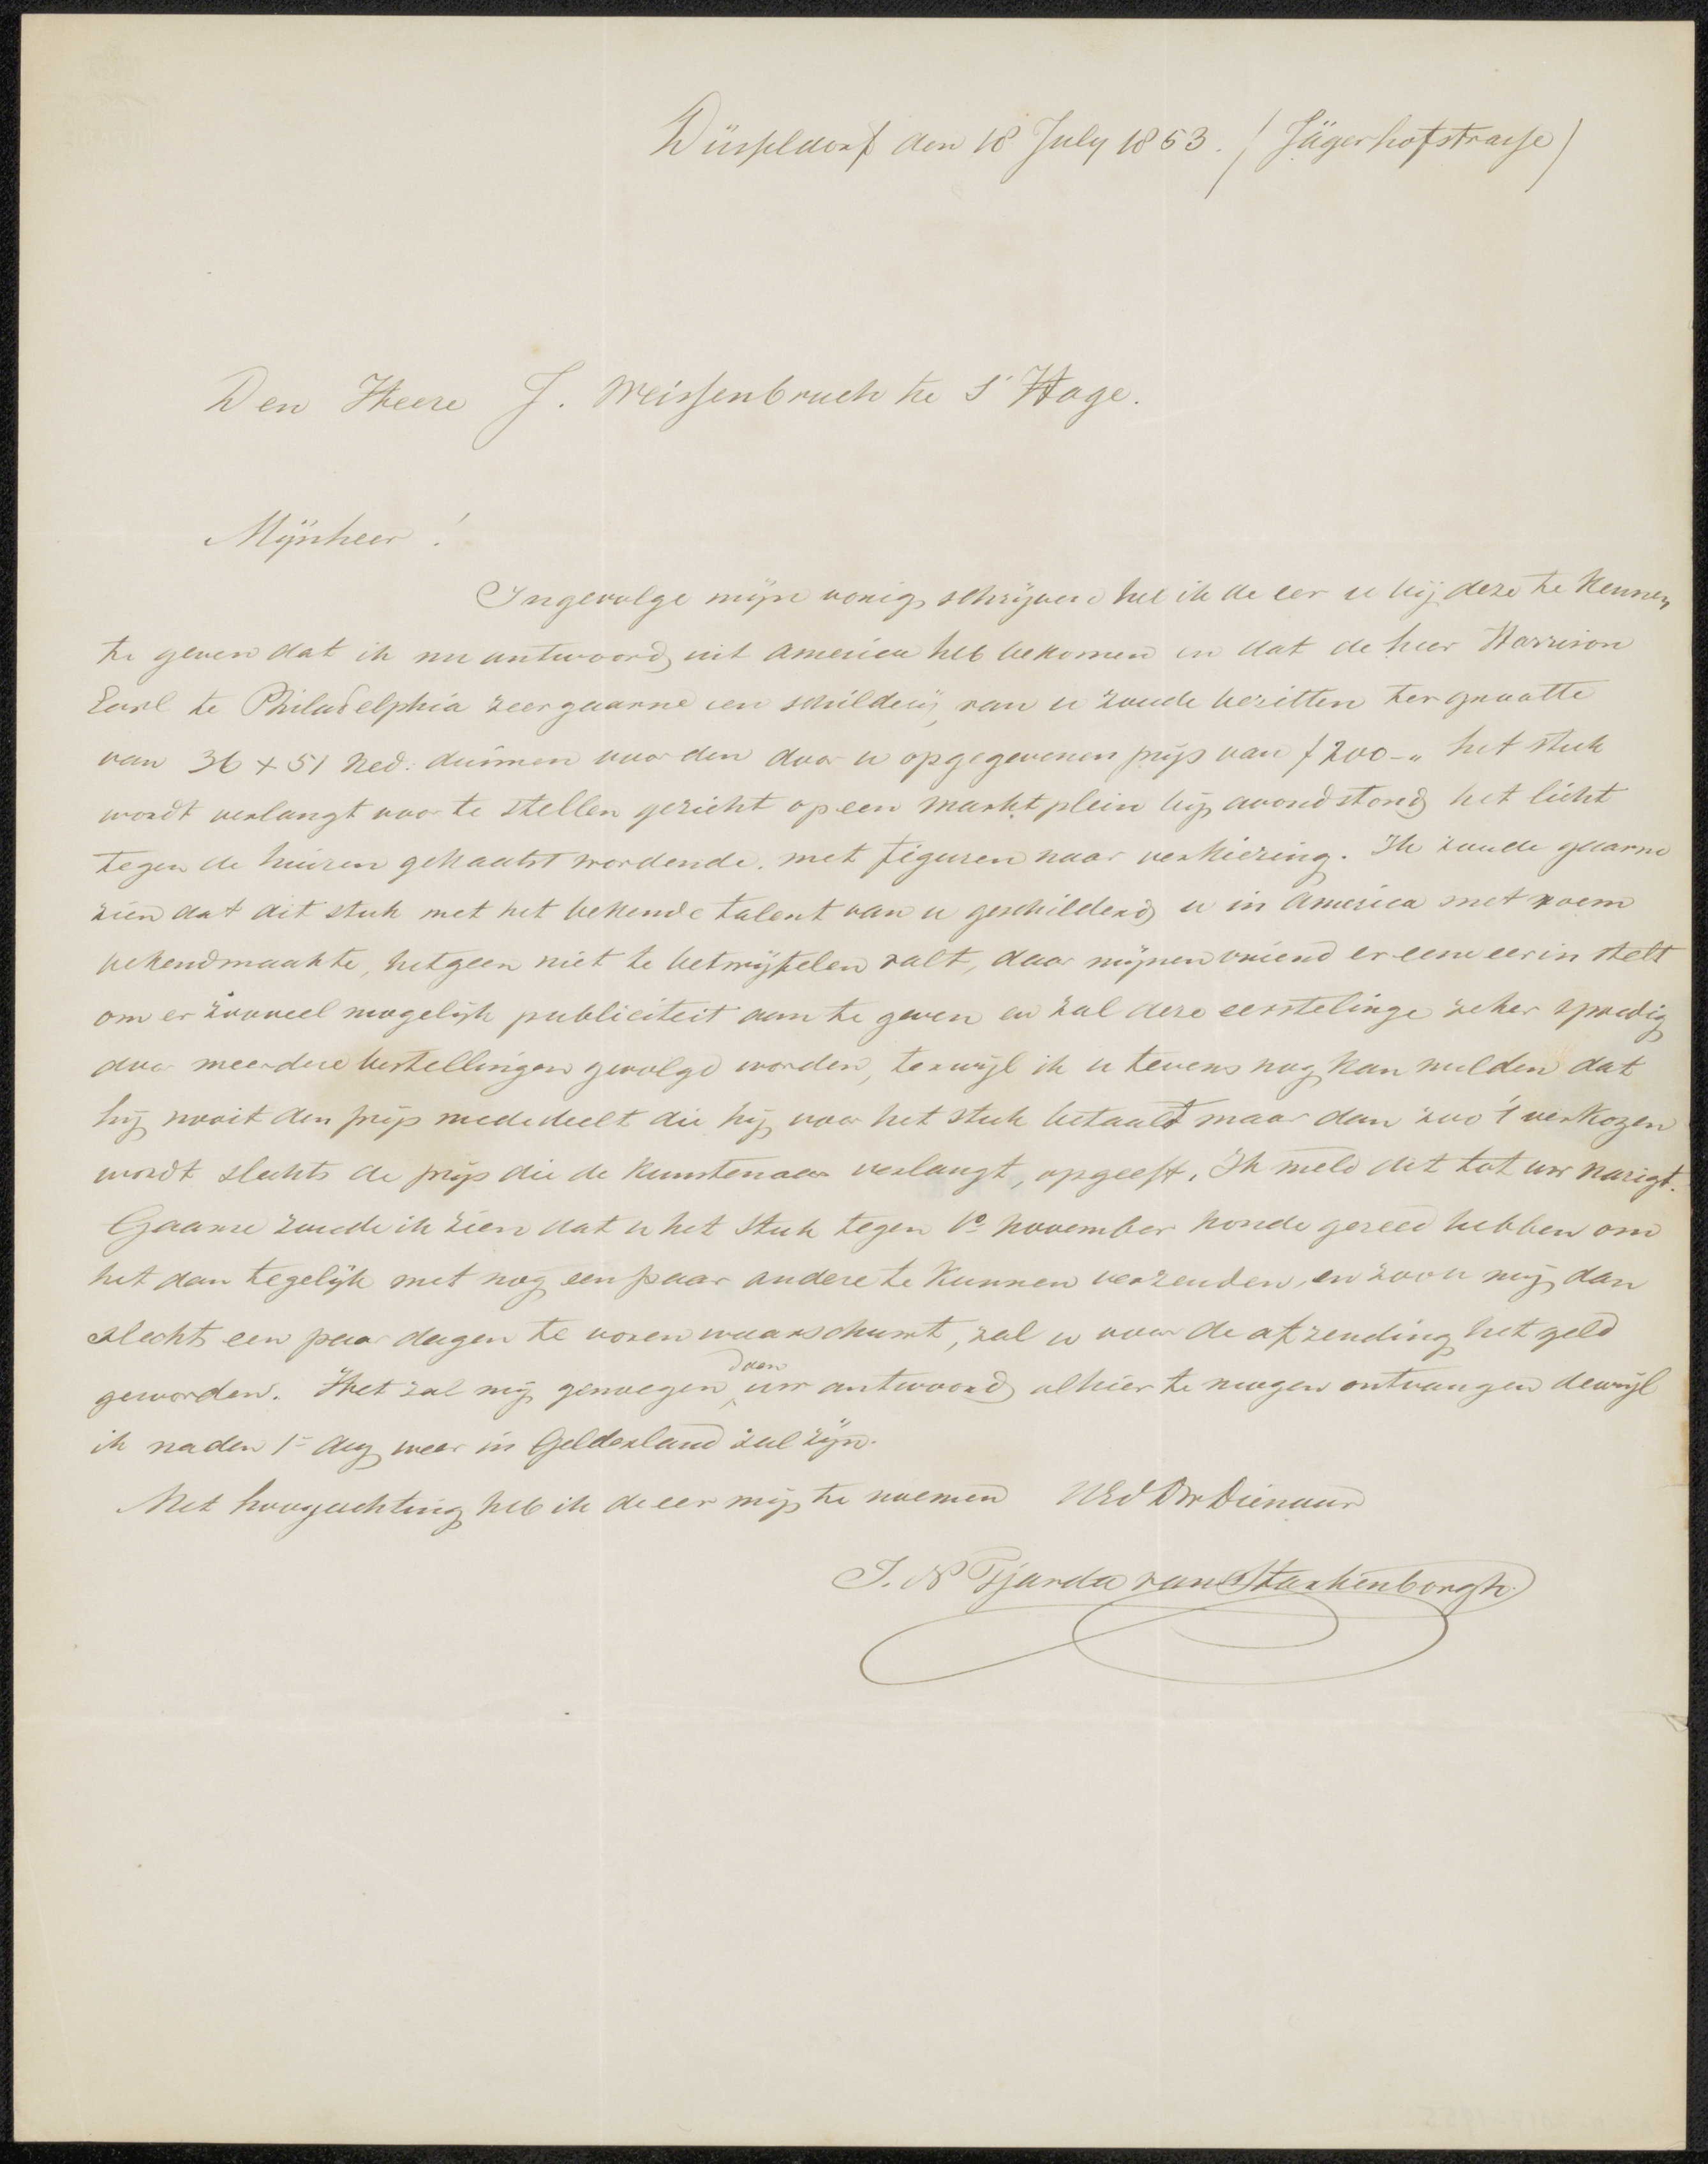 Düsseldorf den 18 July 1853. (Jägerhofstrasse)
Den Heere J. Weissenbruch te S'Hage.
Mÿnheer!
Ingevolge mÿn vorig schrÿven heb ik de eer u bÿ deze te kennen
te geven dat ik nu antwoord uit America heb bekomen en dat de heer Harrison
Earl te Philadelphia zeer gaarne een schilderÿ van u zoude bezitten ter grootte
van 36 x 51 Ned: duimen voor den door u opgegevenen prÿs van f 200-„ het stuk
wordt verlangt voor te stellen gezicht op een marktplein bÿ avondstond het licht
tegen de huizen gekaatst wordende. met figuren naar verkiezing. Ik zoude gaarne
zien dat dit stuk met het bekende talent van u geschilderd u in America met roem
bekendmaakte, hetgeen niet te betwÿfelen valt, daar mÿnen vriend er eene eer in stelt
om er zooveel mogelÿk publiciteit aan te geven en zal deze eerstelinge zeker spoedig
door meerdere bestellingen gevolgd worden, terwÿl ik u tevens nog kan melden dat
hÿ nooit den prÿs mededeelt die hÿ voor het stuk betaald maar dan zoo 't verkozen
wordt slechts de prÿs die de kunstenaar verlangt, opgeeft. Ik meld dit tot uw narigt.
Gaarne zoude ik zien dat u het stuk tegen 1o November konde gereed hebben om
het dan tegelÿk met nog een paar andere te kunnen verzenden, en zoo u mÿ dan
slechts een paar dagen te voren waarschuwt, zal u voor de afzending het geld
geworden. Het zal mÿ genoegen doen uw antwoord alhier te mogen ontvangen dewÿl
ik na den 1e Aug weer in Gelderland zal zÿn.
Met hoogachting heb ik de eer mÿ te noemen UEd Dw Dienaar
J. N Tjarda van Starkenborgh.